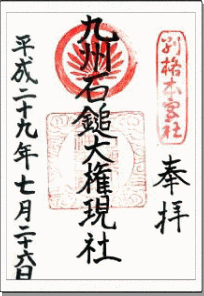 別格本宮社
奉拝
九州石鎚大権現社
平成二十九年七月二十六日